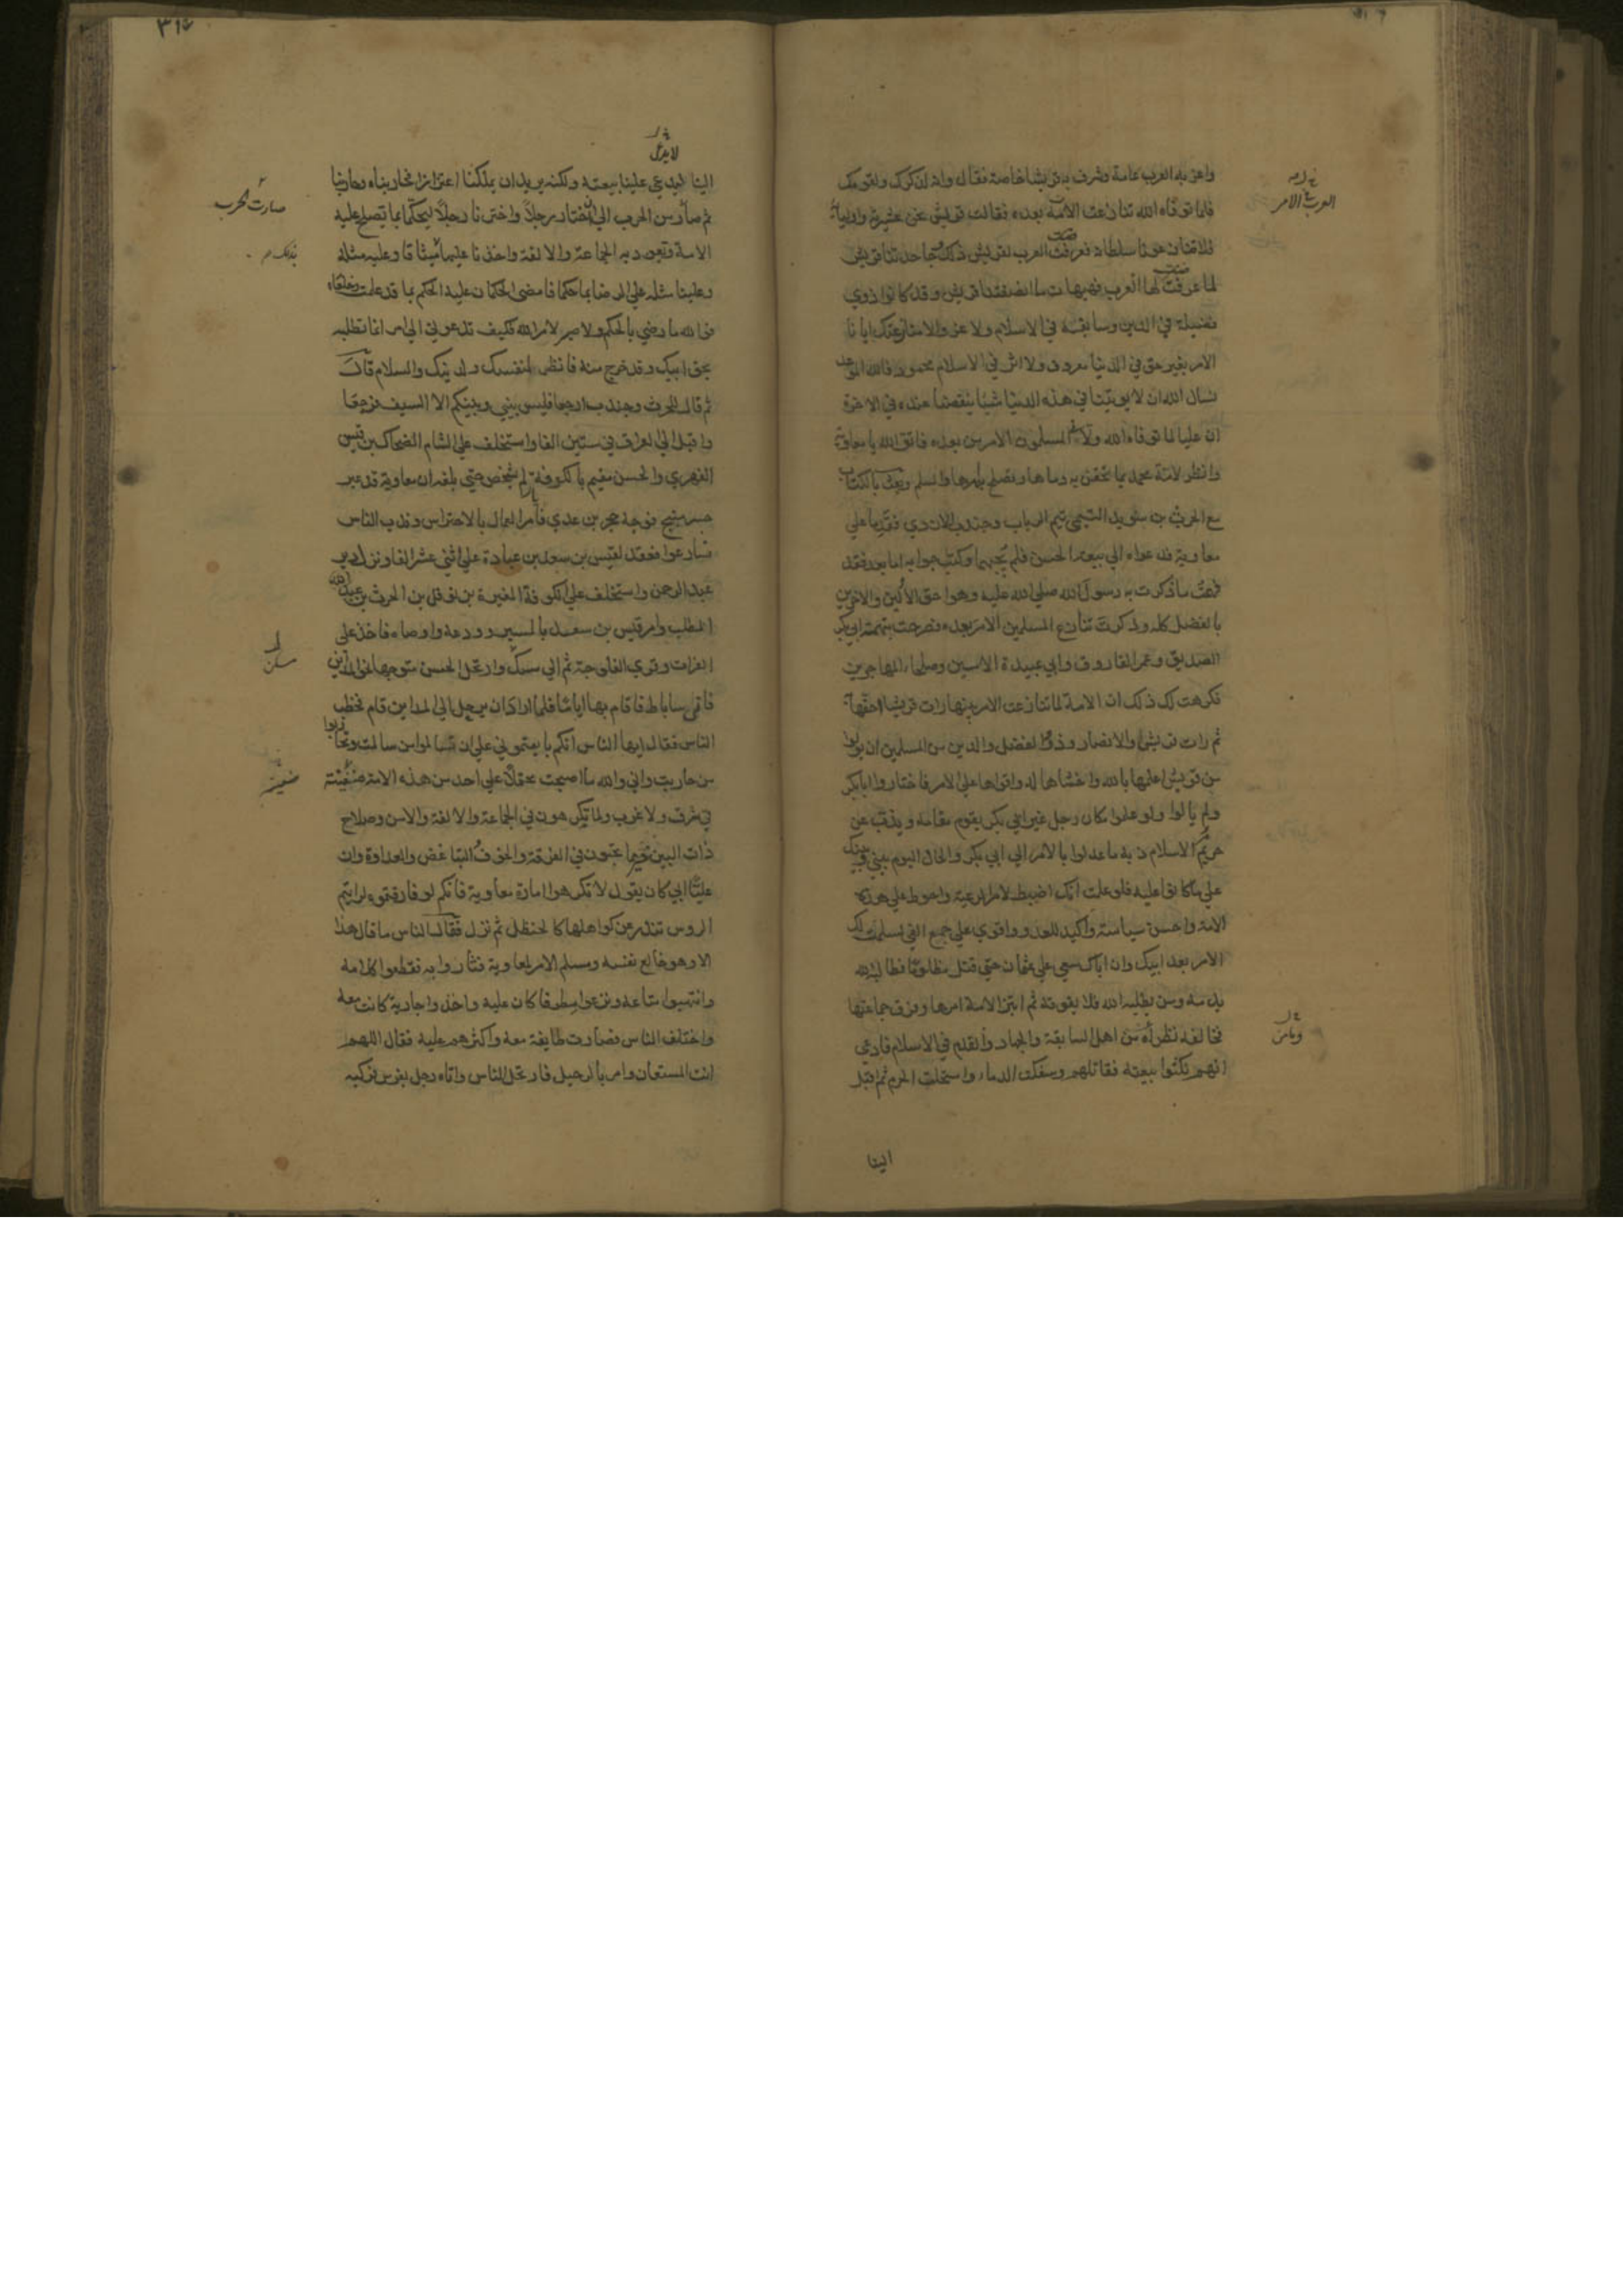 واعز به العرب عامة وشرف به قريشا خاصة فقال وانه لذكر لك ولقومك
فلما توفاه الله تنازعت الامة بعده فقالت قريش نحن عشيرته واولياؤه
فلا تنازعونا سلطانه فعرفت العرب لقريش ذلك وجاحدتنا قريش
ما عرفت لها العرب فهيهات ما انصفتنا قريش وقد كانوا ذوي
فضيلة في الدين وسابقة في الاسلام ولا غرو الا منازعتك ايانا
الامر بغير حق في الدنيا معروف ولا اثر في الاسلام محمود فالله الموعد
نسال الله ان لا يوتينا في هذه الدنيا شيئا ينقصنا عنده في الاخرة
ان عليا لما توفاه الله ولاني المسلمون الامر من بعده فاتق الله يا معاوية
وانظر لامة محمد ما تحقن به دماءها وتصلح امرها والسلم وبعث بالكتاب
مع الحرث بن سويد التيمي تيم الرباب وجندب الازدي فقدما علي
معاوية فدعواه الي بيعة الحسن فلم يجبهما وكتب جوابه اما بعد فقد
فهمت ما ذكرت به رسول الله صلي الله عليه وهو احق الاولين والاخرين
بالفضل كله وذكرت تنازع المسلمين الامر بعده فصرحت بتهمة ابي بكر
الصديق وعمر الفاروق وابي عبيدة الامين وصلحاء المهاجرين
فكرهت لك ذلك ان الامة لما تنازعت الامر بينها رات قريشا احقها به
ثم رات قريش والانصار وذوو الفضل والدين من المسلمين ان يولوا
من قريش اعلمها بالله واخشاها له واقواها علي الامر فاختاروا ابا بكر
ولم يالوا ولو علموا مكان رجل غير ابي بكر يقوم مقامه ويذب عن
حريم الاسلام ذبه ما عدلوا بالامر الي ابي بكر والحال اليوم بيني وبينك
علي ما كانوا عليه فلو علمت انك اضبط لامر الرعية واحوط علي هذه
الامة واحسن سياسة واكيد للعدو واقوي علي جمع الفي لسلمت لك
الامر بعد ابيك وان اباك سعي علي عثمان حتي قتل مظلوما فطالب الله
بدمه ومن يطلبه الله فلا يفوته ثم ابتز الامة امرها وفرق جماعتها
فخالفه نظراؤه من اهل السابقة والجهاد والقدم في الاسلام فادعي
انهم نكثوا بيعته فقاتلهم وسفكت الدماء واستحلت الحرم ثم اقبل
الينا
العرب الامر
٣١٧
الينا لا يدعي علينا بيعته ولكنه يريد ان يملكنا اعتزازا فحاربناه وحاربنا
ثم صار من الحرب الي ان اختار رجلا واخترنا رجلا ليحكما بما تصلح عليه
الامة وتعود به الجماعة والالفة واخذنا عليهما ميثاقا وعليه مثله
وعلينا مثله علي الرضا بما حكما فامضي الحكمان عليه الحكم بما قد علمت وخلعاه
فوالله ما رضي بالحكم ولا صبر لامر الله فكيف تدعوني الي امر انما تطلبه
بحق ابيك وقد خرج منه فانظر لنفسك ولدينك والسلام قال
ثم قال للحرث وجندب ارجعا فليس بيني وبينكم الا السيف فرجعا
واقبل الي العراق في ستين الفا واستخلف علي الشام الضحاك بن قيس
الفهري والحسن مقيم بالكوفة لم يشخص حتي بلغه ان معاوية قد عبر
جسر منبج فوجه حجر بن عدي فامر العمال بالاحتراس وندب الناس
فسارعوا فعقد لقيس بن سعد بن عبادة علي اثني عشر الفا ونزل دير
عبد الرحمن واستخلف علي الكوفة المغيرة بن نوفل بن الحرث بن عبد
المطلب وامر قيس بن سعد بالمسير وودعه واوصاه فاخذ علي
الفرات وقري الفلوجة ثم الي مسكن وارتحل الحسن متوجها نحو المداين
فاتي ساباط فاقام بها اياما فلما اراد ان يرحل الي المداين قام فخطب
الناس فقال ايها الناس انكم بايعتموني علي ان تسالموا من سالمت وتحاربوا
من حاربت واني والله ما اصبحت محتملا علي احد من هذه الامة ضغينة
في شرق ولا غرب ولما تكرهون في الجماعة والالفة والامن وصلاح
ذات البين خير مما تحبون في الفرقة والخوف والتباغض والعداوة وان
عليا ابي كان يقول لا تكرهوا امارة معاوية فانكم لو فارقتموه لرايتم
الروس تندر عن كواهلها كالحنظل ثم نزل فقال الناس ما قال هذا
الا وهو خالع نفسه ومسلم الامر لمعاوية فثاروا به فقطعوا كلامه
وانتهبوا متاعه ونزعوا مطرفا كان عليه واخذوا جارية كانت معه
واختلف الناس فصارت طايفة معه واكثرهم عليه فقال اللهم
انت المستعان وامر بالرحيل فارتحل الناس واتاه رجل بفرس فركبه
صارت الحرب
مسكن